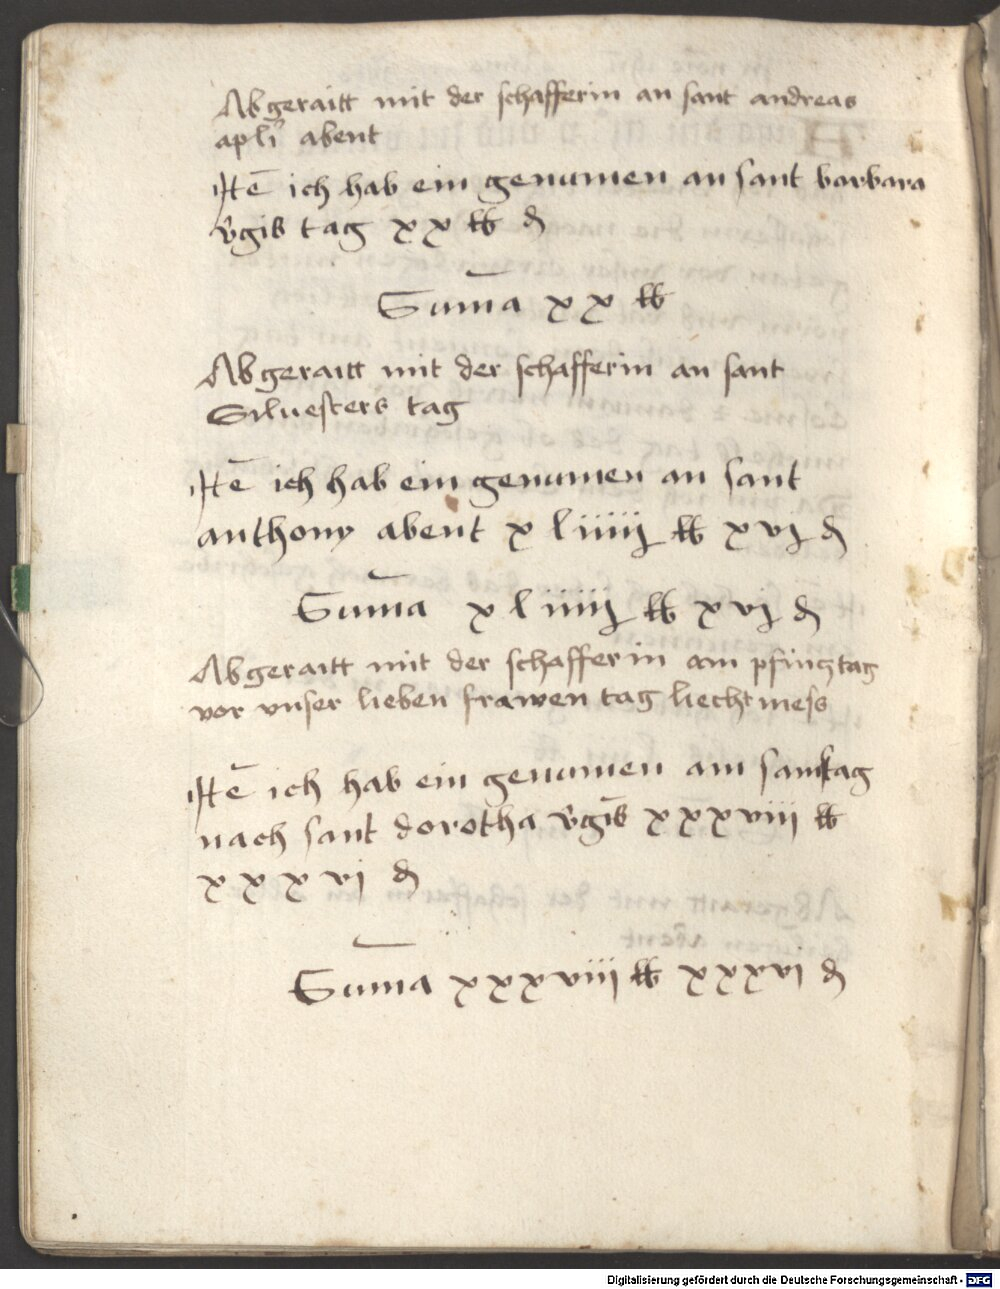 Abgeraitt mit der schafferin an sant andreas
apli abent
Itē ich hab ein genumen an sant barbara
v̄gīs tag xx lb ₰
Sum̄a xx lb
Abgeraitt mit der schafferin an sant
Siluesters tag
Itē ich hab ein genumen an sant
anthony abent xliiiij lb xvj ₰
Sum̄a xliiiij lb xvj ₰
Abgeraitt mit der schafferin am pfincztag
vor vnser lieben frawen tag liechtmess
Itē ich hab ein genumen am samstag
nach sant dorotha v̄gīs xxxviii lb
xxxvi ₰
Sum̄a xxxviii lb xxxvi ₰
Digitalisierung gefördert durch die Deutsche Forschungsgemeinschaft - DFG